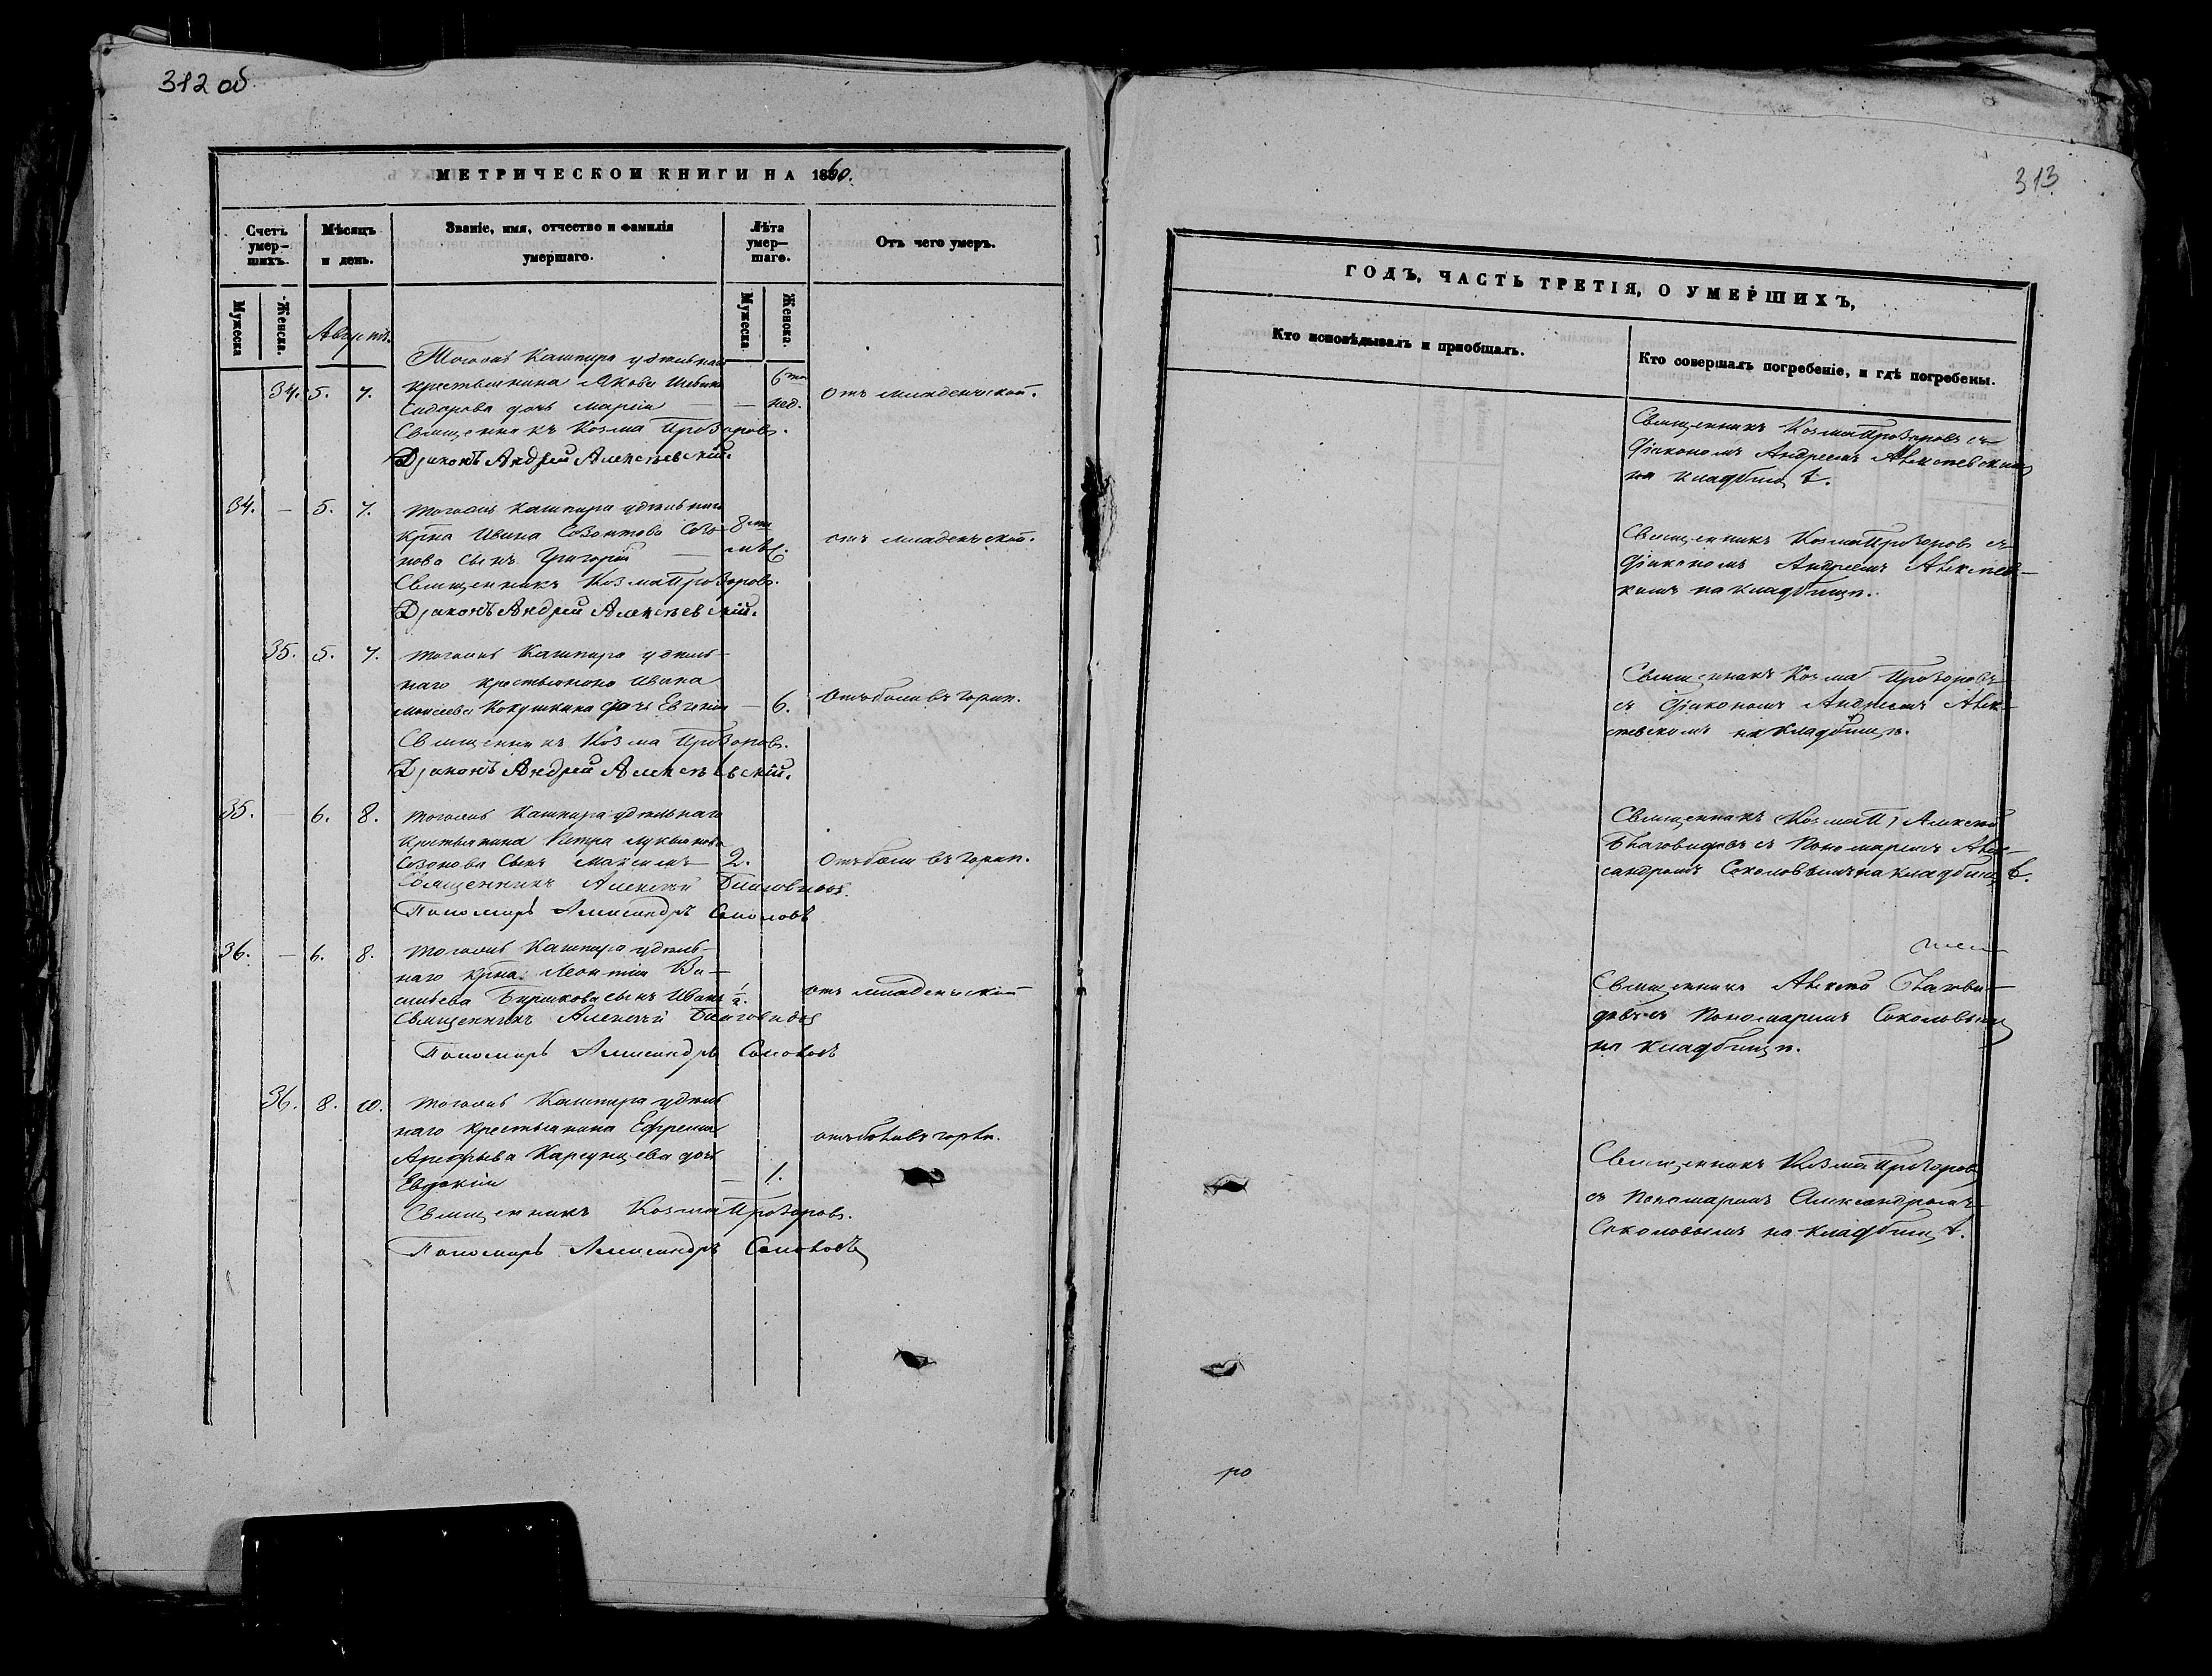 312 об
МЕТРИЧЕСКОЙ КНИГИ НА 1860.
Счетъ умер-шихъ.
Мѣсяцъ и день.
Званіе, имя, отчество и фамилія умершаго.
Лѣта умер-шаго.
Отъ чего умеръ.
Мужеска
Женска.
Мужеска.
Женска.
Августъ.
Тогожъ Кашпира удѣльнаго
34. 5. 7. крестьянина Якова
Сидорова дочь Марія — — 6ти нед. Отъ младенческой.
Священникъ Козма Прозоровъ.
Діаконъ Андрей Алексѣевскій.
34. — 5. 7. тогожъ Кашпира удѣльнаго
кр̃на Ивана Созонтова Созо-
нова сынъ Григорій — 8ми мѣс. отъ младенческой.
Священникъ Козма Прозоровъ.
Діаконъ Андрей Алексѣевскій.
35. 5. 7. тогожъ Кашпира удѣль-
наго крестьянина Ивана
Моисеева Кокушкина дочь Евгенія — 6. Отъ боли въ горлѣ.
Священникъ Козма Прозоровъ.
Діаконъ Андрей Алексѣевскій.
35. — 6. 8. тогожъ Кашпира удѣльнаго
крестьянина Петра Лукьянова
Созонова сынъ Максимъ — 2. Отъ боли въ горлѣ.
Священникъ Алексѣй Благовидовъ.
Пономарь Александръ Соколовъ
36. — 6. 8. тогожъ Кашпира удѣль-
наго кр̃на Леонтія Ва-
сильева Бирюкова сынъ Иванъ ½. отъ младенческой
Священникъ Алексѣй Благовидовъ
Пономарь Александръ Соколовъ
36. 8. 10. тогожъ Кашпира удѣль
наго крестьянина Ефрема
Карсунцева дочь отъ боли въ горлѣ.
Евдокія — 1.
Священникъ Козма Прозоровъ.
Пономарь Александръ Соколовъ
313
ГОДЪ, ЧАСТЬ ТРЕТІЯ, О УМЕРШИХЪ,
Кто исповѣдывалъ и пріобщалъ.
Кто совершалъ погребеніе, и гдѣ погребены.
Священникъ Козма Прозоровъ съ
діакономъ Андреемъ Алексѣевскимъ
на кладбищѣ.
Священникъ Козма Прозоровъ съ
діакономъ Андреемъ Алексѣев-
скимъ на кладбищѣ.
Священникъ Козма Прозоровъ
съ діакономъ Андреемъ Алек-
сѣевскимъ на кладбищѣ.
Священникъ (Козма П) Алексѣй
Благовидовъ съ Пономаремъ Алек-
сандромъ Соколовымъ на кладбищѣ.
Священникъ Алексѣй Благови-
довъ съ Пономаремъ Соколовымъ
на кладбищѣ.
Священникъ Козма Прозоровъ
съ Пономаремъ Александромъ
Соколовымъ на кладбищѣ.
ро